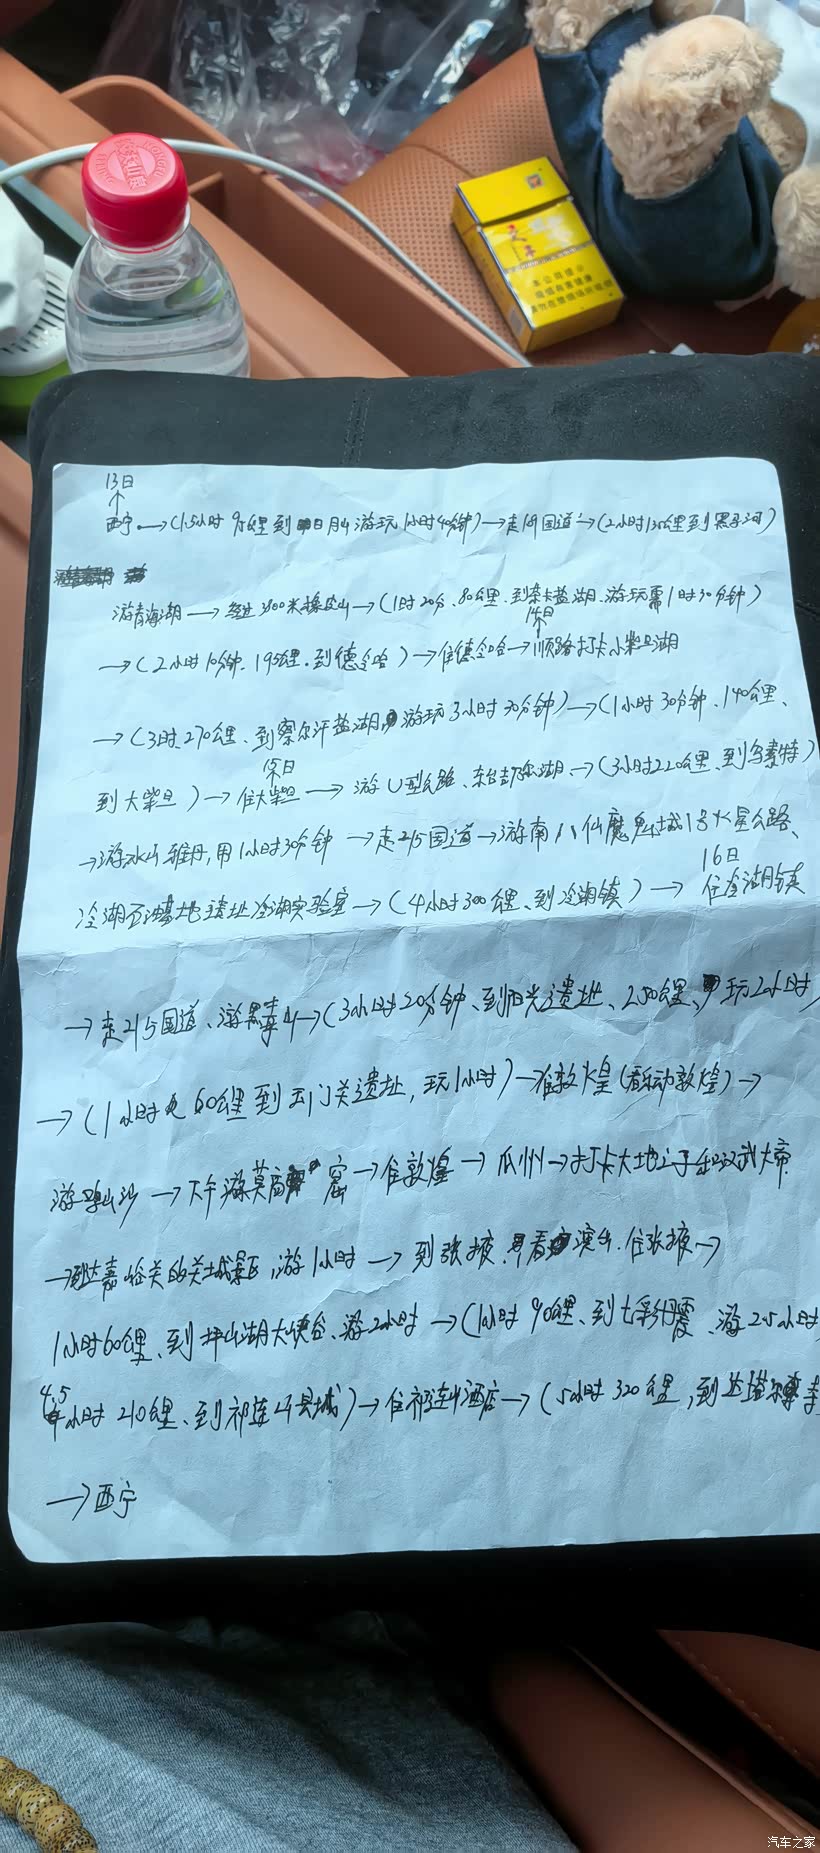 13日
↑
西宁→(1.5小时95公里到日月山游玩1小时40分钟)→走109国道→(2小时135公里到黑马河)
游青海湖→经过3800米橡皮山→(1时20分、80公里、到茶卡盐湖、游玩需1时30分钟)
14日
→(2小时10分钟、195公里、到德令哈)→住德令哈→顺路打卡小柴旦湖
→(3时、270公里、到察尔汗盐湖、游玩3小时30分钟)→(1小时30分钟、140公里、
15日
到大柴旦)→住大柴旦→游U型公路、东台吉乃尔湖、→(3小时220公里、到乌素特)
→游水上雅丹,用1小时30分钟→走215国道→游南八仙魔鬼城1号火星公路、
16日
冷湖石油基地遗址冷湖实验室→(4小时300公里、到冷湖镇)→住冷湖镇
→走215国道、游黑独山→(3小时20分钟、到阳光遗址、250公里、玩2小时
→(1小时60公里到玉门关遗址,玩1小时)→住敦煌(看乐动敦煌)→
游鸣山沙→下午游莫高窟→住敦煌→瓜州→打卡大地之子和汉武大帝
→到达嘉峪关的关城景区,游1小时→到张掖、看演出、住张掖→
1小时60公里、到平山湖大峡谷、游2小时→(1小时90公里、到七彩丹霞、游2.5小时
(4.5小时210公里、到祁连山县城)→住祁连山酒店→(5小时320公里,到达塔尔寺
→西宁
本公司提示
吸烟有害健康
请勿在禁烟场所吸烟
汽车之家